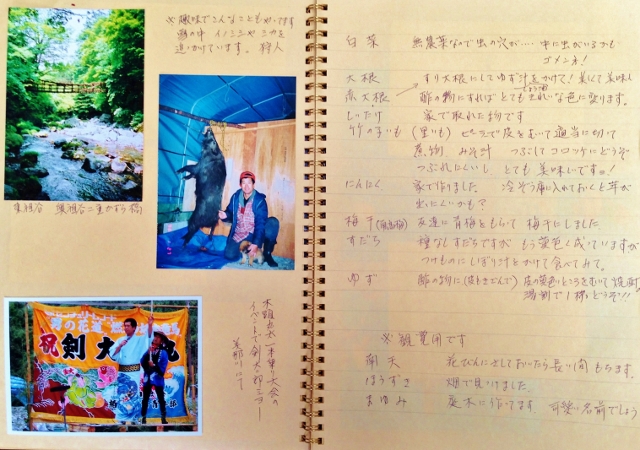 ※ 趣味でこんなこともやってます
雪の中 イノシシ シカを
追いかけています。狩人
東祖谷 奥祖谷二重かずら橋
祝 剣 大
木頭杉一本乗り大会の
イベントで剣大
那賀川にて
白菜 無農薬なので虫の穴が‥‥ 中に虫がいるかも
ゴメンネ!
大根 すり大根にしてゆず汁をかけて! 美味し
赤大根 酢の物にすればとてもきれいな色に変ります。
しいたけ 家で取れた物です
竹の子いも (里いも) ピーラーで皮をむいて適当に切って
煮物 みそ汁 つぶしてコロッケにどうぞ
つぶれにくいし とても美味しいです。!
にんにく 家で作りました 冷ぞう庫に入れておくと芽が
出にくいかも?
梅干 友達に青梅をもらって 梅干にしました
すだち 種なしすだちですが もう黄色く成っていますが
つけものにしぼり汁とかけて食べてみて。
ゆず 酢の物に 皮の黄色いところをむいて
湯割で1杯どうぞ!!
※ 観賞用です
南天 花びんにさしておいたら長い間もちます。
ほうずき 畑で見つけました
まゆみ 庭木に作ってます。 可愛い名前でしょう